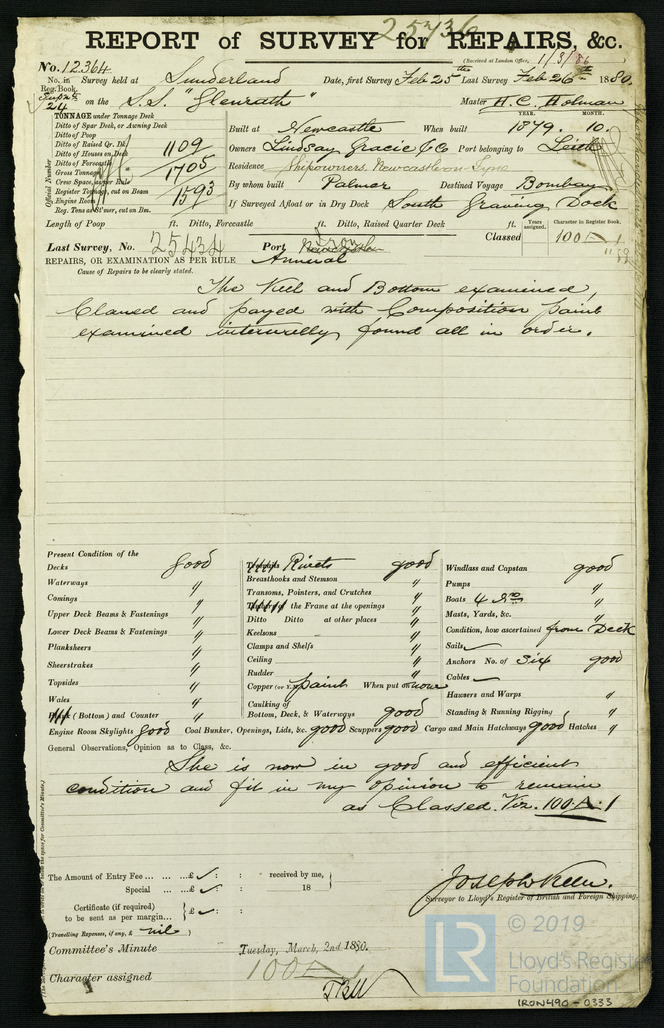 25736
REPORT of SURVEY for REPAIRS, &c.
(Received at London Office, 1/3/80
No. 12364
No. in Reg. Book. Survey held at Sunderland Date, first Survey Feb 25th Last Survey Feb 26th 1880
24 on the S.S. "Glenrath" Master H.C. Holman
TONNAGE under Tonnage Deck
Ditto of Spar Deck, or Awning Deck
Ditto of Poop
Ditto of Raised Qr. Dk. 1109
Ditto of Houses on Deck
Ditto of Forecastle
Gross Tonnage 1705
Crew Space,
Register Tonnage, cut on Beam 1593
Engine Room
Reg. Tons as St'mer, cut on Bm.
Official Number
YEAR. MONTH.
Built at Newcastle When built 1879. 10.
Owners Lindsay Gracie & Co Port belonging to Leith
Residence Shipowners. Newcastle on Tyne
By whom built Palmer Destined Voyage Bombay
If Surveyed Afloat or in Dry Dock South Graving Dock
Length of Poop ft. Ditto, Forecastle ft. Ditto, Raised Quarter Deck ft.
Years assigned. Character in Register Book.
Classed 100 A 1
Last Survey, No. 25434 Port
REPAIRS, OR EXAMINATION AS PER RULE Annual
Cause of Repairs to be clearly stated.
The Keel and Bottom examined,
Claned and payed with Composition paint
examined internally found all in order.
Present Condition of the
Decks good
Waterways "
Comings "
Upper Deck Beams & Fastenings "
Lower Deck Beams & Fastenings "
Planksheers "
Sheerstrakes "
Topsides "
Wales "
(Bottom) and Counter "
Rivets good
Breasthooks and Stemson "
Transoms, Pointers, and Crutches "
the Frame at the openings "
Ditto Ditto at other places "
Keelsons "
Clamps and Shelfs "
Ceiling "
Rudder "
Copper (or Y.M.) paint When put on now
Caulking of
Bottom, Deck, & Waterways good
Windlass and Capstan good
Pumps "
Boats 4 "
Masts, Yards, &c. "
Condition, how ascertained from Deck
Sails
Anchors No. of Six good
Cables
Hawsers and Warps "
Standing & Running Rigging "
Engine Room Skylights good Coal Bunker, Openings, Lids, &c. good Scuppers good Cargo and Main Hatchways good Hatches "
General Observations, Opinion as to Class, &c.
She is now in good and efficient
condition and fit in my opinion to remain
as Classed. Viz. 100 A. 1
The Amount of Entry Fee ... ... ...£ ✓ : : received by me,
Special ... ...£ ✓ : 18
Certificate (if required)
to be sent as per margin... £ ✓ :
(Travelling Expenses, if any, £ nil )
Joseph Keen.
Surveyor to Lloyd's Register of British and Foreign Shipping.
Committee's Minute Tuesday, March, 2nd 1880.
Character assigned 100 A 1
© 2019
LR
Lloyd's Register
Foundation
IRON490-0333